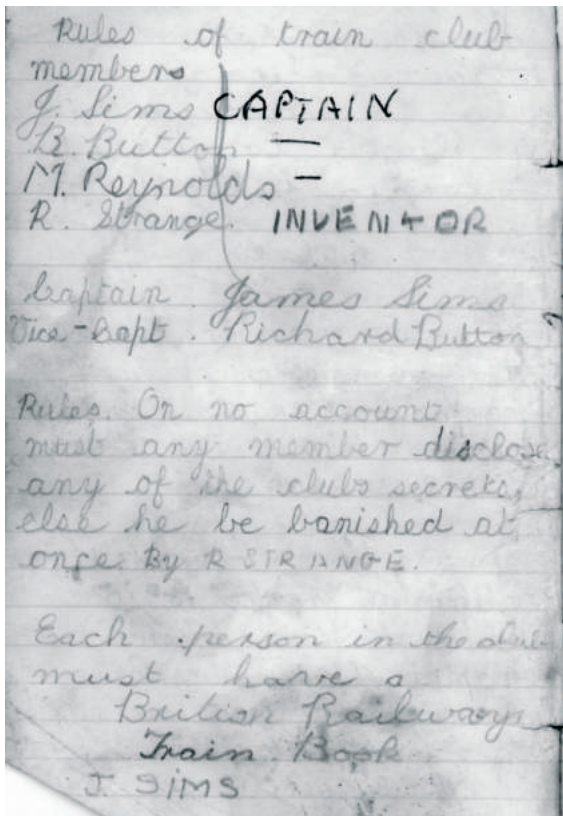 Rules of train club
members
J. Sims CAPTAIN
R. Button —
M. Reynolds —
R. Strange. INVENTOR
Captain James Sims
Vice-Capt. Richard Button
Rules. On no account
must any member disclose
any of the clubs secrets,
else he be banished at
once By R STRANGE.
Each person in the club
must have a
British Railways
Train Book
J. SIMS